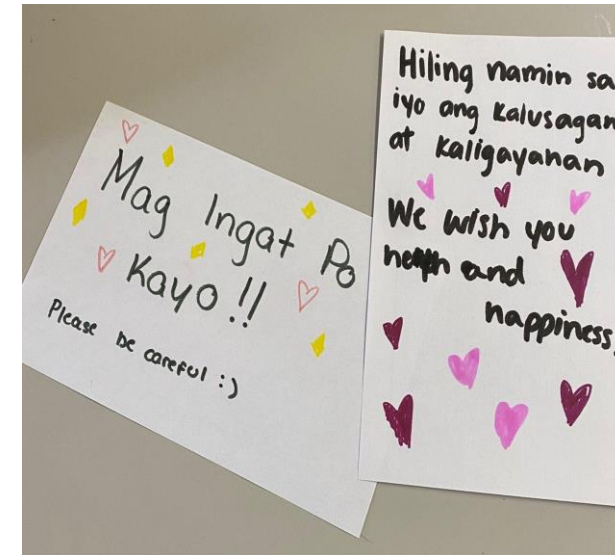 Mag Ingat Po
Kayo!!
Please be careful :)
Hiling namin sa
iyo ang kalusagan
at kaligayanan
We wish you
health and
happiness